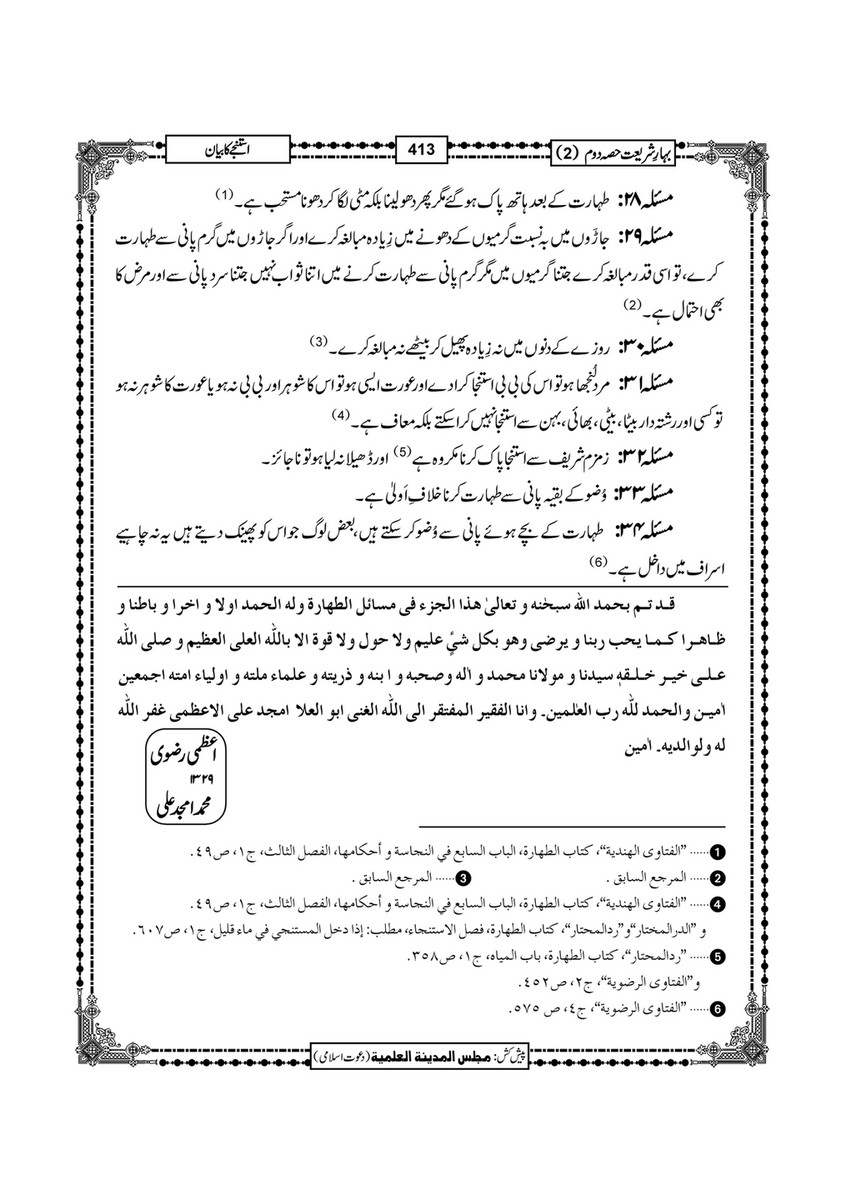 بہارِشریعت حصہ دوم (2)
413
استنجے کا بیان
مسئلہ ۲۸: طہارت کے بعد ہاتھ پاک ہوگئے مگر پھر دھو لینا بلکہ مٹی لگا کر دھونا مستحب ہے۔ (1)
مسئلہ ۲۹: جاڑوں میں بہ نسبت گرمیوں کے دھونے میں زِیادہ مبالغہ کرے اور اگر جاڑوں میں گرم پانی سے طہارت
کرے، تو اسی قدر مبالغہ کرے جتنا گرمیوں میں مگر گرم پانی سے طہارت کرنے میں اتنا ثواب نہیں جتنا سرد پانی سے اور مرض کا
بھی احتمال ہے۔ (2)
مسئلہ ۳۰: روزے کے دنوں میں نہ زِیادہ پھیل کر بیٹھے نہ مبالغہ کرے۔ (3)
مسئلہ ۳۱: مرد لُنجھا ہو تو اس کی بی بی استنجا کرا دے اور عورت ایسی ہو تو اس کا شوہر اور بی بی نہ ہو یا عورت کا شوہر نہ ہو
تو کسی اور رشتہ دار بیٹا، بیٹی، بھائی، بہن سے استنجا نہیں کرا سکتے بلکہ معاف ہے۔ (4)
مسئلہ ۳۲: زمزم شریف سے استنجا پاک کرنا مکروہ ہے (5) اور ڈھیلا نہ لیا ہو تو ناجائز۔
مسئلہ ۳۳: وُضو کے بقیہ پانی سے طہارت کرنا خلافِ اَولیٰ ہے۔
مسئلہ ۳۴: طہارت کے بچے ہوئے پانی سے وُضو کر سکتے ہیں، بعض لوگ جو اس کو پھینک دیتے ہیں یہ نہ چاہیے
اسراف میں داخل ہے۔ (6)
قد تم بحمد اللہ سبحٰنہ و تعالیٰ ھذا الجزء فی مسائل الطھارۃ ولہ الحمد اولا و اخرا و باطنا و
ظاھرا کما یحب ربنا و یرضی وھو بکل شیٍٔ علیم ولا حول ولا قوۃ الا باللہ العلی العظیم و صلی اللہ
علی خیر خلقہٖ سیدنا و مولانا محمد و اٰلہ وصحبہ و ابنہ و ذریتہ و علماء ملتہ و اولیاء امتہ اجمعین
اٰمین والحمد للہ رب العٰلمین۔ وانا الفقیر المفتقر الی اللہ الغنی ابو العلا امجد علی الاعظمی غفر اللہ
لہ ولوالدیہ۔ اٰمین
اعظمی رضوی
۱۳۲۹
محمد امجد علی
1 ...... ”الفتاوی الهندیة“، کتاب الطهارة، الباب السابع في النجاسة و أحکامها، الفصل الثالث، ج١، ص٤٩.
2 ...... المرجع السابق . 3 ...... المرجع السابق .
4 ...... ”الفتاوی الهندیة“، کتاب الطهارة، الباب السابع في النجاسة و أحکامها، الفصل الثالث، ج١، ص٤٩.
و ”الدرالمختار“و”ردالمحتار“، کتاب الطهارة، فصل الاستنجاء، مطلب: إذا دخل المستنجي في ماء قلیل، ج١، ص٦٠٧.
5 ...... ”ردالمحتار“، کتاب الطهارة، باب المیاه، ج١، ص٣٥٨.
و”الفتاوی الرضویة“، ج٢، ص٤٥٢.
6 ...... ”الفتاوی الرضویة“، ج٤، ص ٥٧٥.
پیش کش: مجلس المدینة العلمیة (دعوتِ اسلامی)